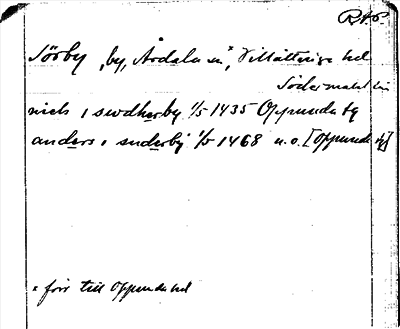 RAP.
Sörby, by, Årdala sn*, Villåttinge hd
Södermanl. län
niels i swdherby 1/5 1435 Oppunda sg
anders i suderby 1/5 1468 u.o. [Oppunda sg]
* förr till Oppunda hd